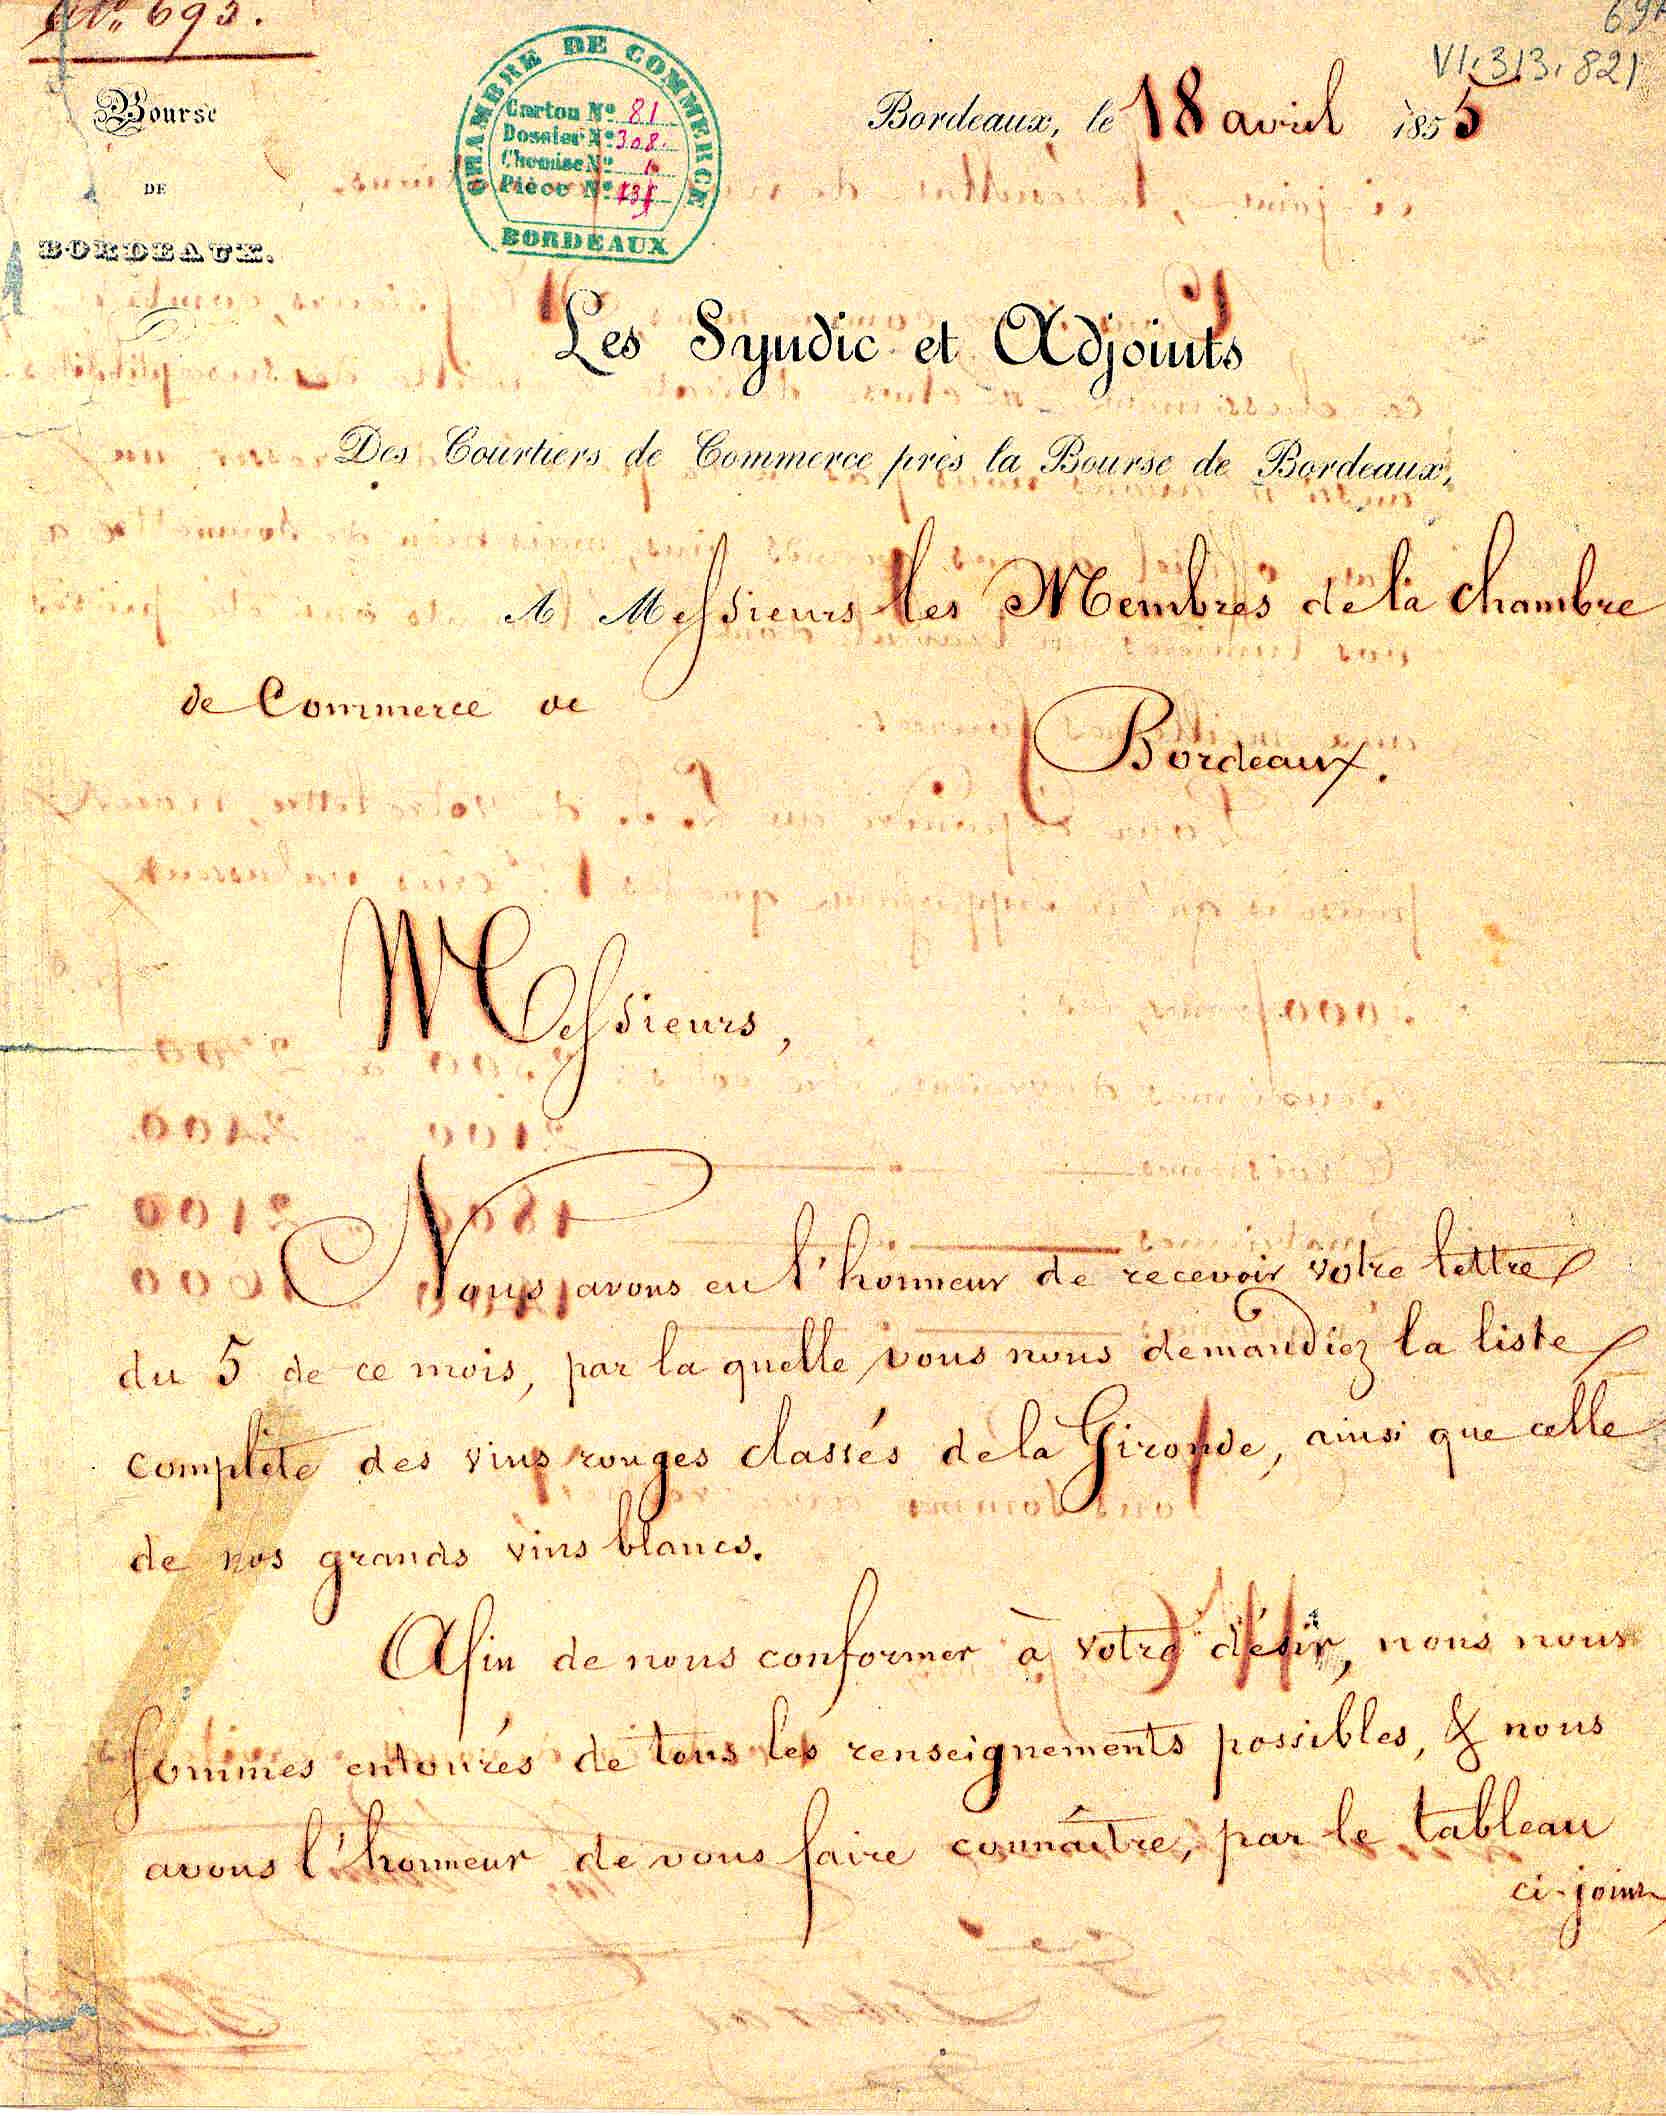 N.° 693.
VI.313.821
Bourse
DE
BORDEAUX.
CHAMBRE DE COMMERCE
Carton N° 81
Dossier N° 308.
Chemise N°
Pièce N°
BORDEAUX
Bordeaux, le 18 avril 1855
Les Syndic et Adjoints
Des Courtiers de Commerce près la Bourse de Bordeaux,
A Messieurs les Membres de la Chambre
de Commerce de
Bordeaux.
Messieurs,
Nous avons eu l'honneur de recevoir votre lettre
du 5 de ce mois, par la quelle vous nous demandiez la liste
complète des vins rouges classés de la Gironde, ainsi que celle
de nos grands vins blancs.
Afin de nous conformer à votre désir, nous nous
sommes entourés de tous les renseignements possibles, & nous
avons l'honneur de vous faire connaître, par le tableau
ci-joint